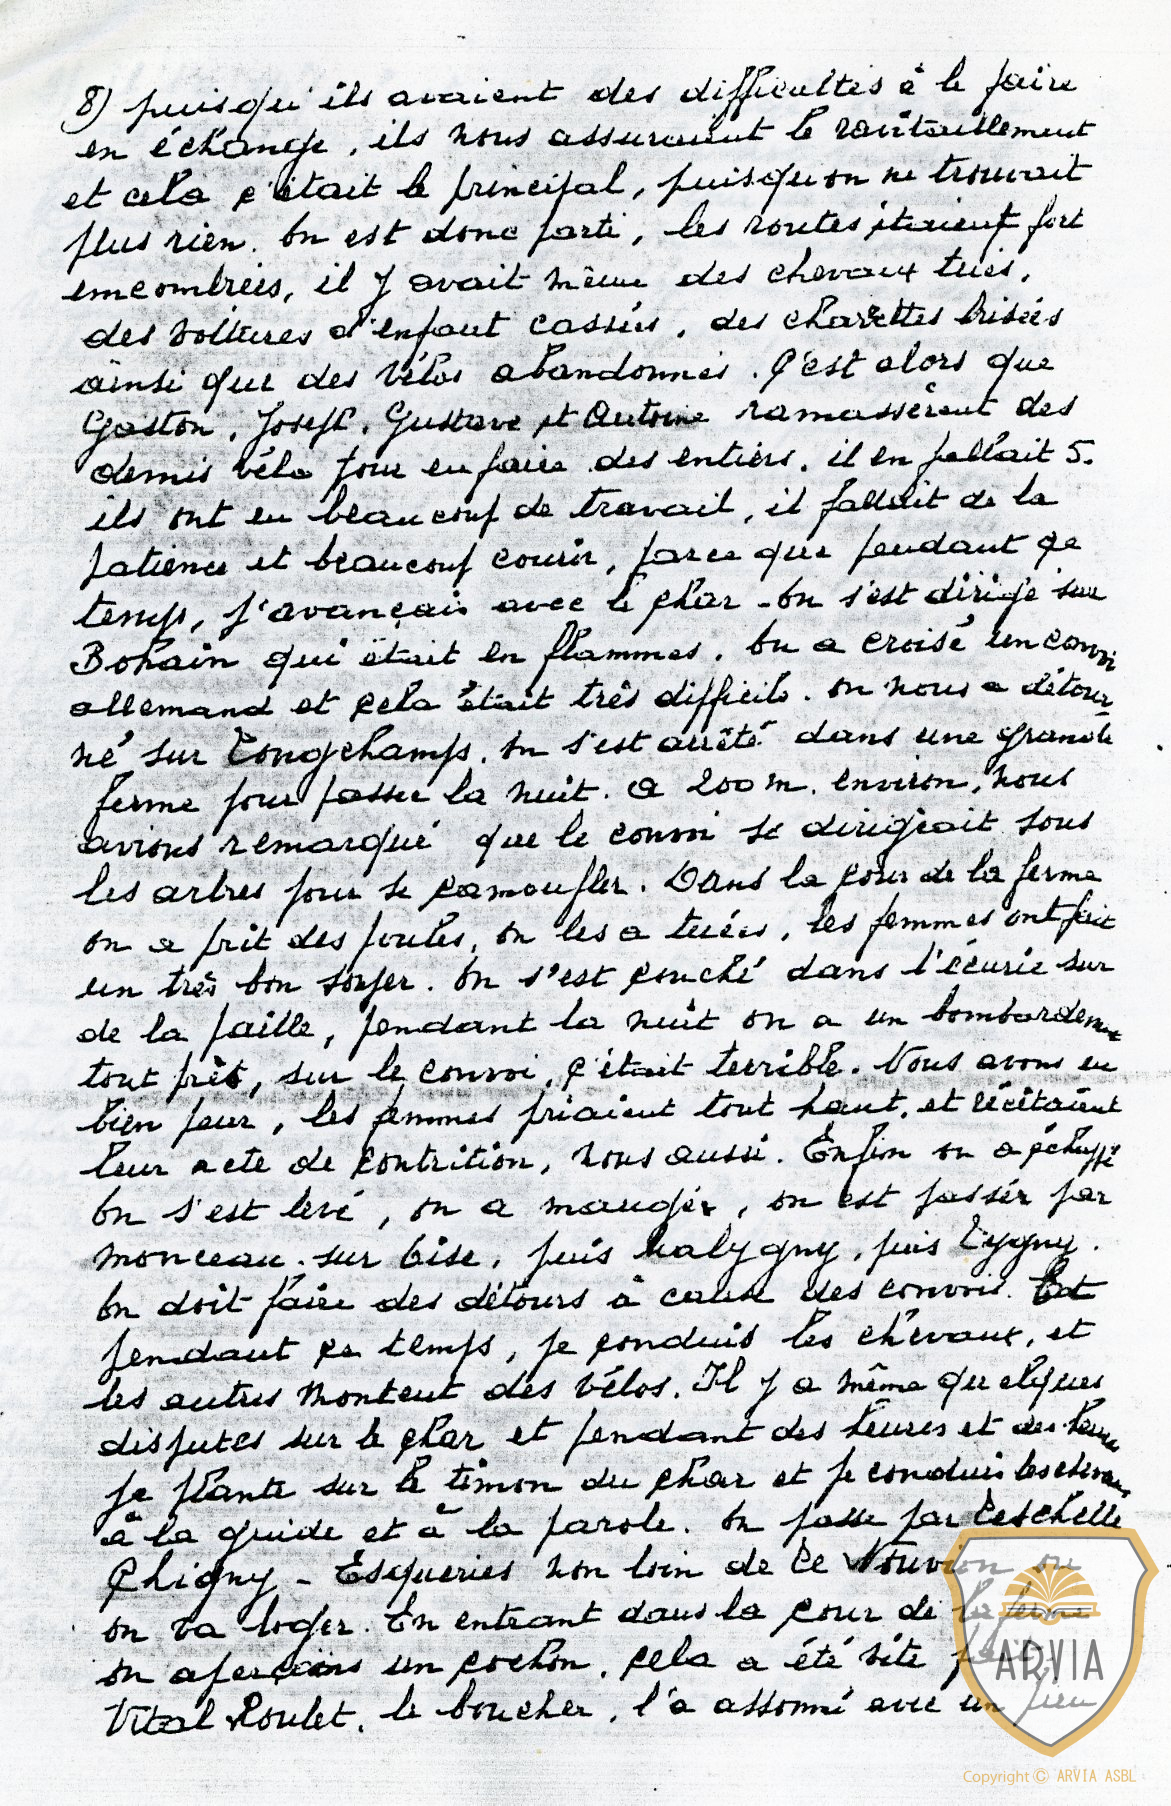 8) puisqu'ils avaient des difficultés à le faire
en échange, ils nous assuraient le ravitaillement
et cela c'était le principal, puisqu'on ne trouvait
plus rien. On est donc parti, les routes étaient fort
emcombrées, il y avait même des chevaux tués,
des voitures d'enfant cassées, des charettes brisées
ainsi que des vélos abandonnés. C'est alors que
Gaston, Joseph, Gustave et Antoine ramassèrent des
demis vélo pour en faire des entiers, il en fallait 5.
ils ont eu beaucoup de travail, il fallait de la
patience et beaucoup courir, parce que pendant ce
temps, j'avançais avec le char - On s'est dirigé sur
Bohain qui était en flammes. On a croisé un convoi
allemand et cela était très difficile. On nous a détour
né sur Longchamps. On s'est arrêté dans une grande
ferme pour passer la nuit. A 200 m. environ, nous
avions remarqué que le convoi se dirigeait sous
les arbres pour se camoufler. Dans la cour de la ferme
on a prit des poules, on les a tuées, les femmes ont fait
un très bon souper. On s'est couché dans l'écurie sur
de la paille, pendant la nuit on a un bombardement
tout près, sur le convoi, c'était terrible. Nous avons eu
bien peur, les femmes priaient tout haut, et récitaient
leur acte de contrition, nous aussi. Enfin on a échappé
On s'est levé, on a manger, on est passér par
Monceau-sur Oise, puis Malzy, puis
On doit faire des détours à cause des convois. Et
pendant ce temps, je conduis les chevaux, et
les autres montent des vélos. Il y a même quelques
disputes sur le char et pendant des heures et des heures
je plante sur le timon du char et je conduis les chevaux
à la guide et à la parole. On passe par Leschelle
Chigny - Esqueries non loin de Le Nouvion ou
on va loger. En entrant dans la cour de la ferme
on aperçoins un cochon, cela a été vite fait
Vital Roulet, le boucher, l'a assommé avec un pieu
ARVIA
Copyright © ARVIA ASBL